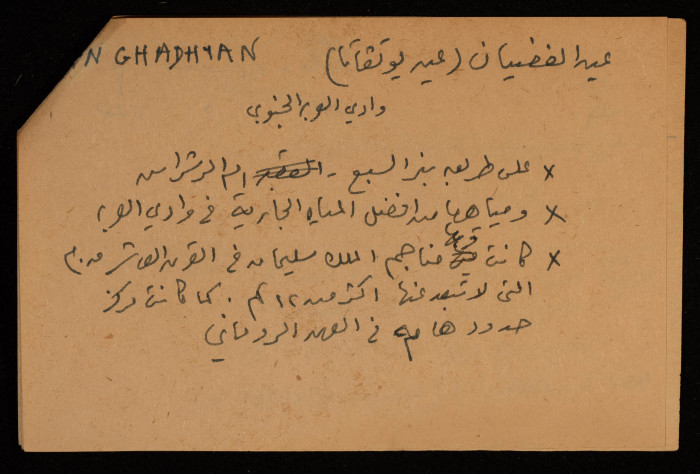 N GHADHYAN عين الغضيان (عين يوتقاتا)
وادي العربه الجنوبي
x على طريق بئر السبع - العقبه ام الرشراش
x ومياهها من افضل المياه الجارية في وادي العربه
x كانت قرب مناجم الملك سليمان في القرن العاشر ق.م
التي لا تبعد عنها اكثر من ١٢ كم . كما كانت مركز
حدود هام في العهد الروماني